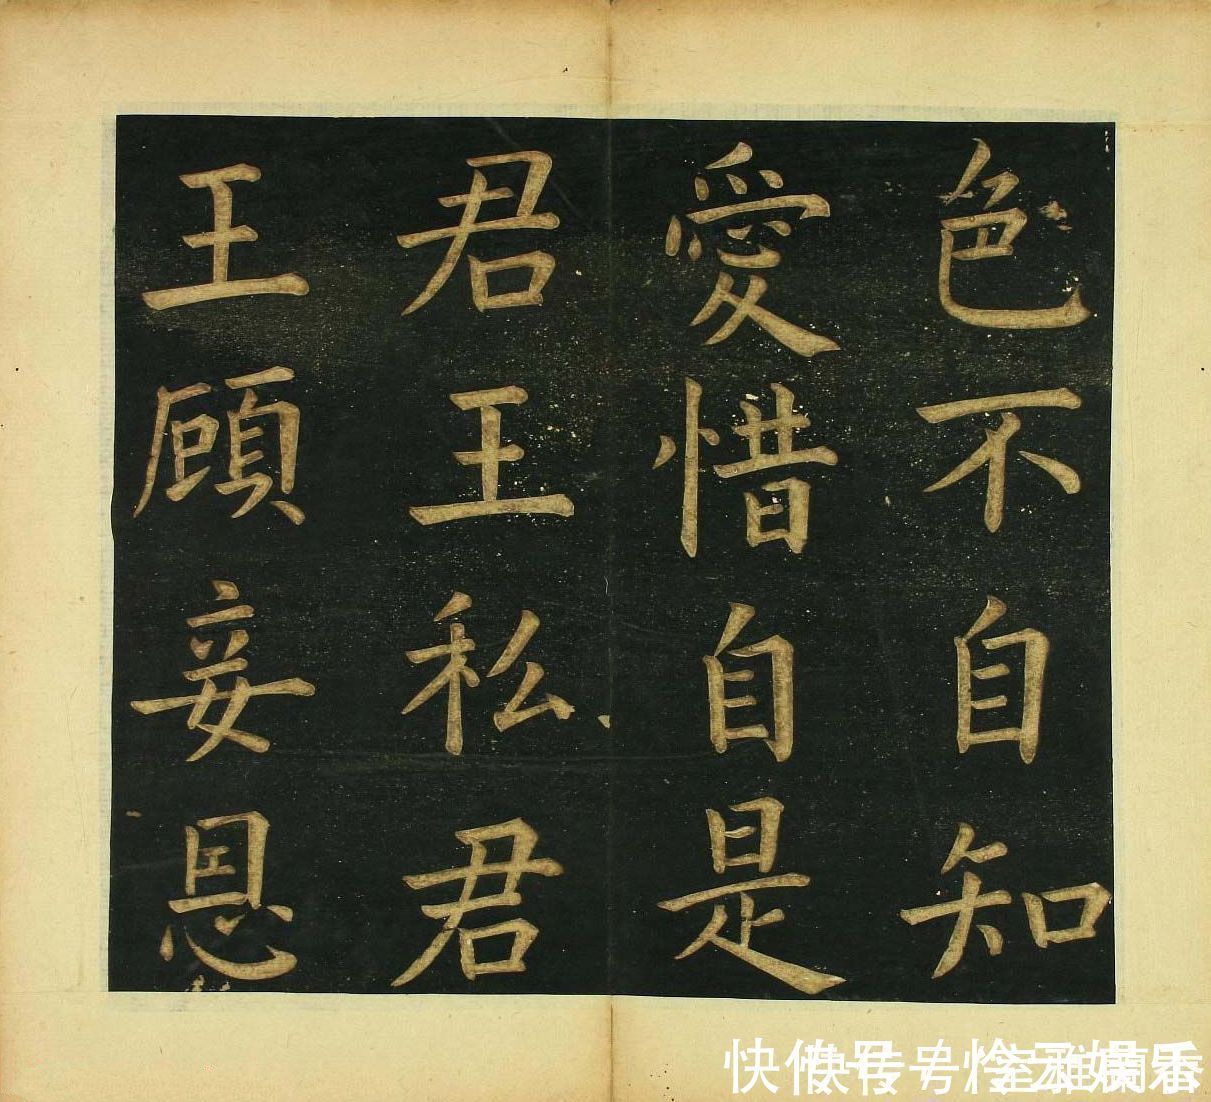 色不自知
愛惜自是
君王私君
王顧妾恩
快传号